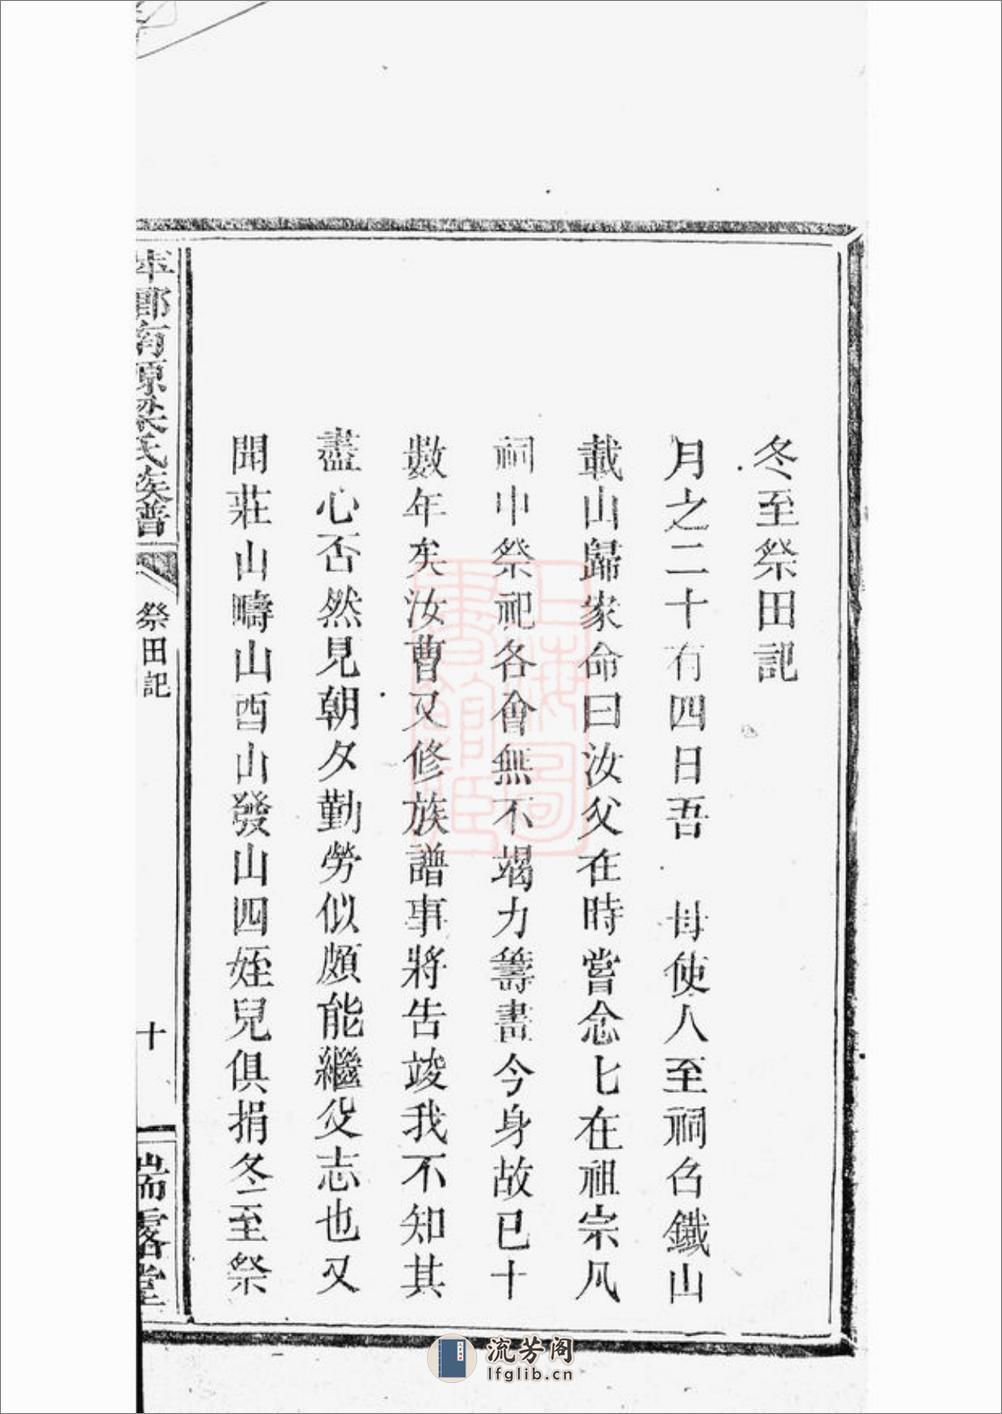 冬至祭田記
月之二十有四日吾 母使人至祠召鐵山
載山歸家命曰汝父在時嘗念匕在祖宗凡
祠中祭祀各會無不竭力籌畫今身故已十
數年矣汝曹又修族譜事將告竣我不知其
盡心否然見朝夕勤勞似頗能繼父志也又
聞莊山疇山酉山發山四姪兒俱捐冬至祭
郡南源梁氏族譜
祭田記
十
瑞露堂
上海圖書館藏
流芳阁
lfglib.cn